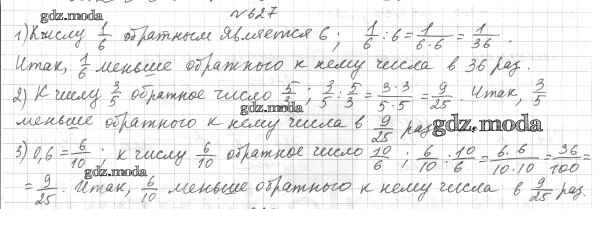 №627
gdz.moda
1) К числу 1/6 обратным является 6; 1/6 : 6 = 1/(6·6) = 1/36.
Итак, 1/6 меньше обратного к нему числа в 36 раз.
gdz.moda
2) К числу 3/5 обратное число 5/3; 3/5 : 5/3 = (3·3)/(5·5) = 9/25. Итак, 3/5
gdz.moda
меньше обратного к нему числа в 9/25 раз
gdz.moda
3) 0,6 = 6/10; к числу 6/10 обратное число 10/6; 6/10 : 10/6 = (6·6)/(10·10) = 36/100 =
gdz.moda
= 9/25. Итак, 6/10 меньше обратного к нему числа в 9/25 раз.